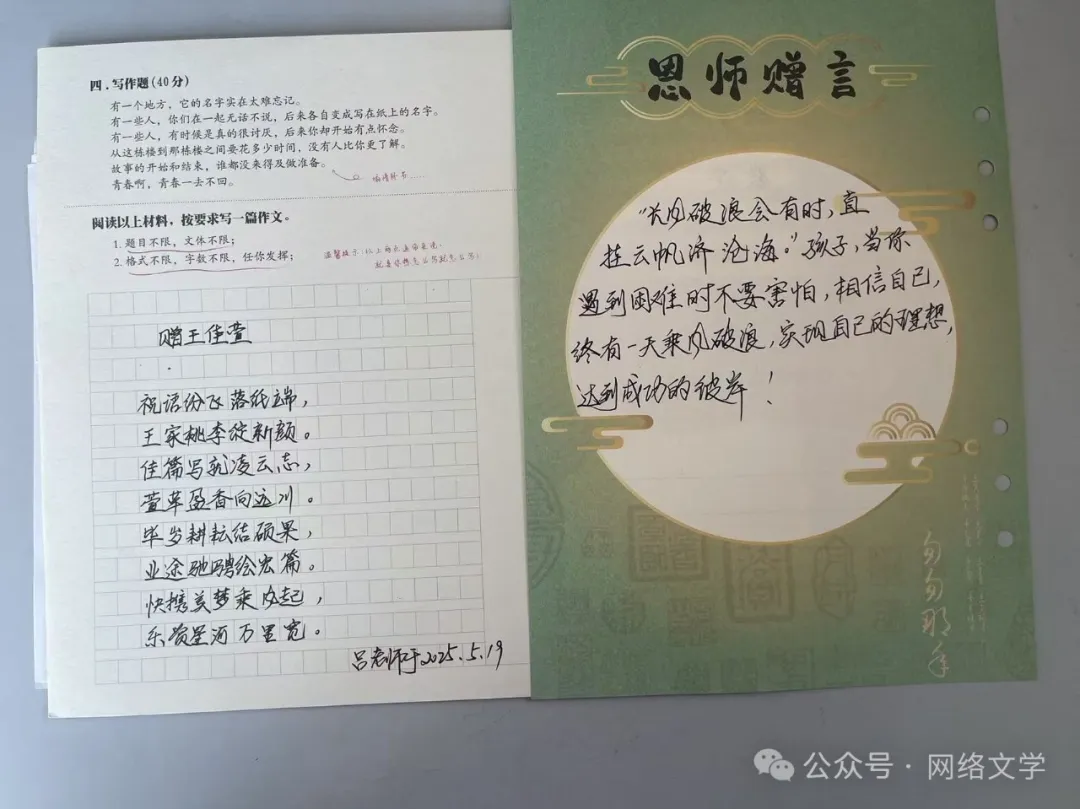 四．写作题（40分）
有一个地方，它的名字实在太难忘记。
有一些人，你们在一起无话不说，后来各自变成写在纸上的名字。
有一些人，有时候是真的很讨厌，后来你却开始有点怀念。
从这栋楼到那栋楼之间要花多少时间，没有人比你更了解。
故事的开始和结束，谁都没来得及做准备。
青春啊，青春一去不回。
阅读以上材料，按要求写一篇作文。
1. 题目不限，文体不限；
2. 格式不限，字数不限，任你发挥；
赠王佳萱
祝语纷飞落纸端，
王家桃李绽新颜。
佳篇写就凌云志，
萱草盈香向远川。
毕岁耕耘结硕果，
业途驰骋绘宏篇。
快携美梦乘风起，
乐览星河万里宽。
吕老师于2025.5.19
恩师赠言
“长风破浪会有时，直
挂云帆济沧海。”孩子，当你
遇到困难时不要害怕，相信自己，
终有一天乘风破浪，实现自己的理想，
达到成功的彼岸！
匆匆那年
公众号 · 网络文学